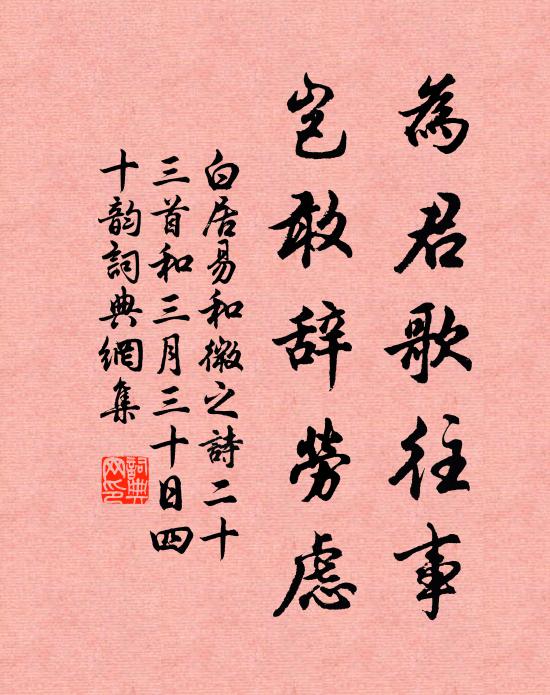 為君歌往事
豈敢辞勞慮
白居易和微之詩二十
三首和三月三十日四
十韵詞典網集
詞典网印